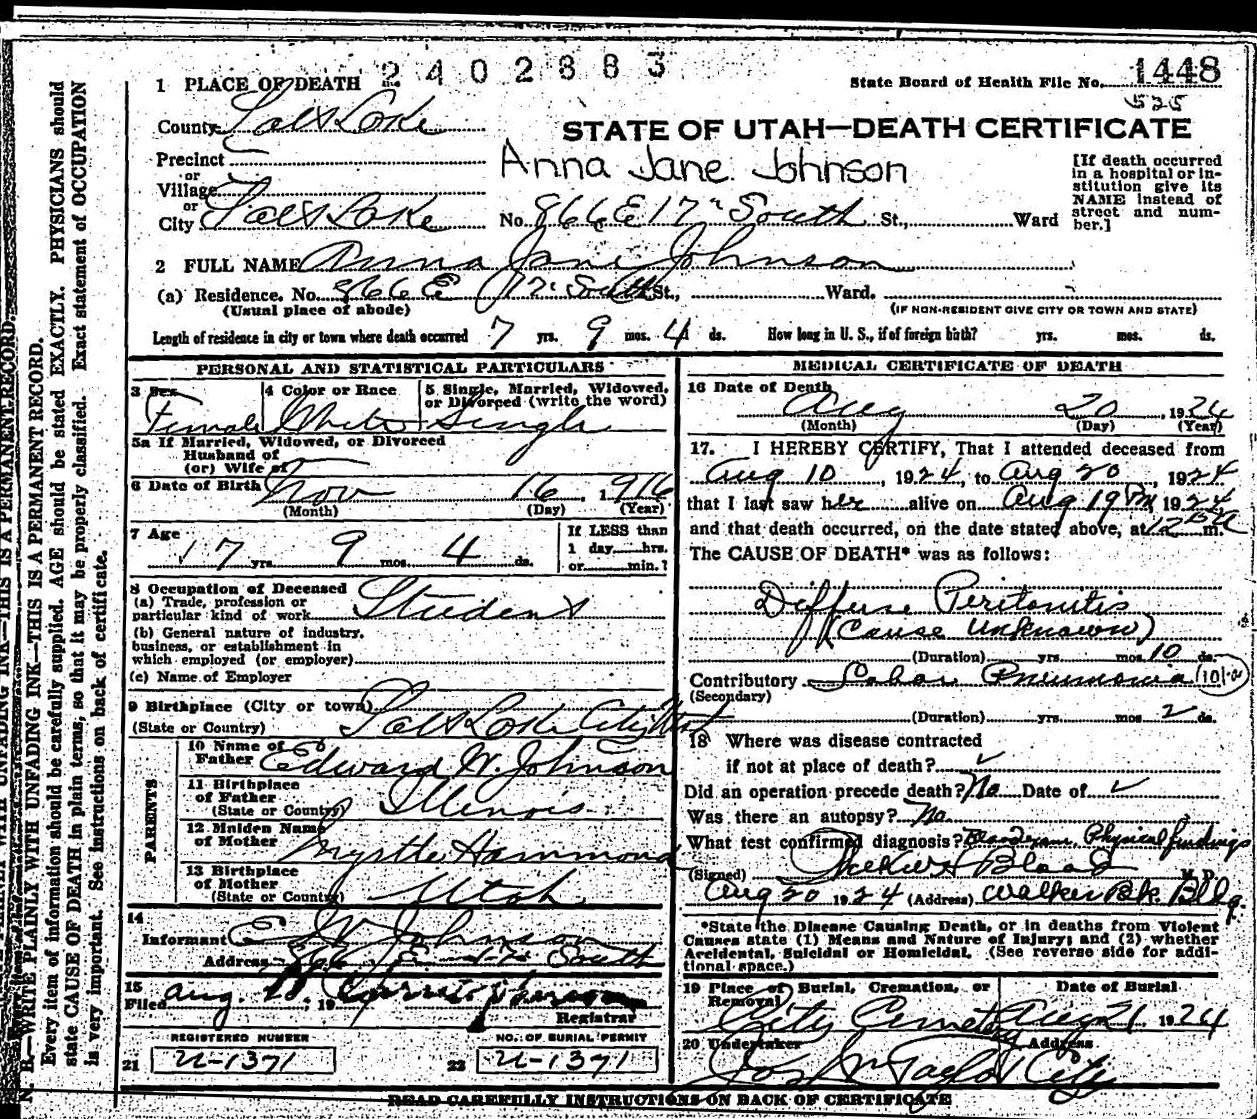 2402883
State Board of Health File No. 1448
525
1 PLACE OF DEATH
County Salt Lake
STATE OF UTAH—DEATH CERTIFICATE
Precinct
or
Village
or
City Salt Lake
Anna Jane Johnson
No. 866 E 17" South St., Ward
[If death occurred
in a hospital or in-
stitution give its
NAME instead of
street and num-
ber.]
2 FULL NAME Anna Jane Johnson
(a) Residence. No. 866 E 17" South St., Ward.
(Usual place of abode)
(IF NON-RESIDENT GIVE CITY OR TOWN AND STATE)
Length of residence in city or town where death occurred 7 yrs. 9 mos. 4 ds. How long in U. S., if of foreign birth? yrs. mos. ds.
PERSONAL AND STATISTICAL PARTICULARS
3 Sex
Female
4 Color or Race
White
5 Single, Married, Widowed,
or Divorced (write the word)
Single
5a If Married, Widowed, or Divorced
Husband of
(or) Wife of
6 Date of Birth Nov 16, 1916
(Month) (Day) (Year)
7 Age
7 yrs. 9 mos. 4 ds.
If LESS than
1 day hrs.
or min.?
8 Occupation of Deceased
(a) Trade, profession or
particular kind of work Student
(b) General nature of industry,
business, or establishment in
which employed (or employer)
(c) Name of Employer
9 Birthplace (City or town)
(State or Country) Salt Lake City Ut
PARENTS
10 Name of
Father Edward W. Johnson
11 Birthplace
of Father
(State or Country) Illinois
12 Maiden Name
of Mother Myrtle Hammond
13 Birthplace
of Mother
(State or Country) Utah
14
Informant E W Johnson
Address 866 E 17 South
15
Filed Aug. , 19
Registrar
REGISTERED NUMBER
21 U-1371
NO. OF BURIAL PERMIT
22 U-1371
MEDICAL CERTIFICATE OF DEATH
16 Date of Death
Aug 20, 1924
(Month) (Day) (Year)
17. I HEREBY CERTIFY, That I attended deceased from
Aug 10, 1924, to Aug 20, 1924
that I last saw her alive on Aug 19 PM 1924
and that death occurred, on the date stated above, at 12 m.
The CAUSE OF DEATH* was as follows:
Deffuse Peritonitis
(Cause Unknown)
(Duration) yrs. mos. 10 ds.
Contributory Lobar Pneumonia
(Secondary)
(Duration) yrs. mos. 2 ds.
18 Where was disease contracted
if not at place of death? ✓
Did an operation precede death? No Date of ✓
Was there an autopsy? No
What test confirmed diagnosis? Physical findings
(Signed) M.D.
Aug 20 1924 (Address) Walker Bk. Bldg.
*State the Disease Causing Death, or in deaths from Violent
Causes state (1) Means and Nature of Injury; and (2) whether
Accidental, Suicidal or Homicidal. (See reverse side for addi-
tional space.)
19 Place of Burial, Cremation, or
Removal
City Cemetery
Date of Burial
Aug 21 1924
20 Undertaker Address
Jos Wm Taylor City
READ CAREFULLY INSTRUCTIONS ON BACK OF CERTIFICATE
N. B.—WRITE PLAINLY WITH UNFADING INK—THIS IS A PERMANENT RECORD.
Every item of information should be carefully supplied. AGE should be stated EXACTLY. PHYSICIANS should
state CAUSE OF DEATH in plain terms, so that it may be properly classified. Exact statement of OCCUPATION
is very important. See instructions on back of certificate.